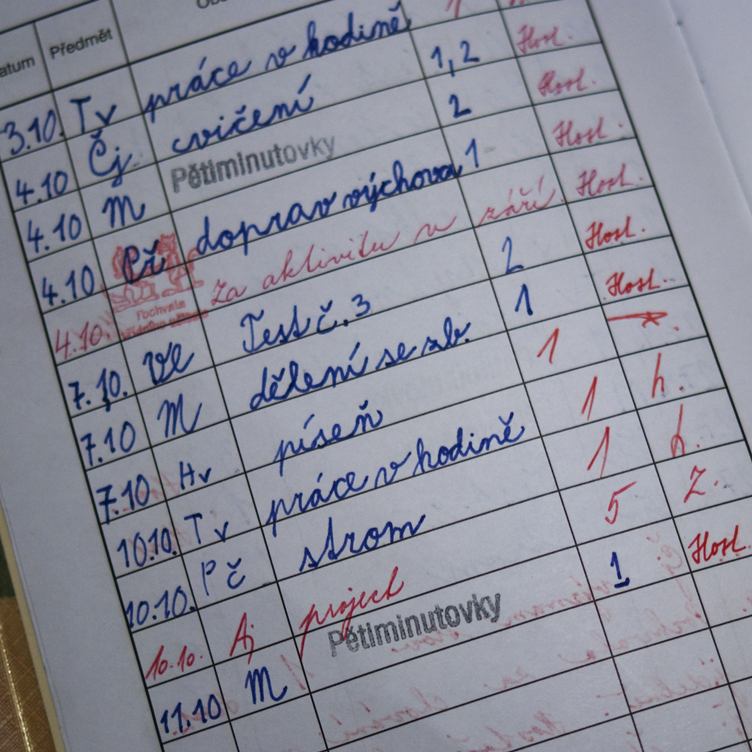 atum Předmět
3.10. Tv práce v hodině 1
4.10 Čj cvičení 1,2 Hosl.
4.10 M Pětiminutovky 2 Hosl.
4.10. Př doprav výchova 1 Hosl.
4.10. Pochvala za aktivitu v září. Hosl.
7.10. Vl Test č. 3 2 Hosl.
7.10 M dělení se zb. 1 Hosl.
7.10. Hv píseň 1
10.10. Tv práce v hodině 1 h.
10.10. Pč strom 1 h.
10.10. Aj project 5 Z.
11.10 M Pětiminutovky 1 Hosl.